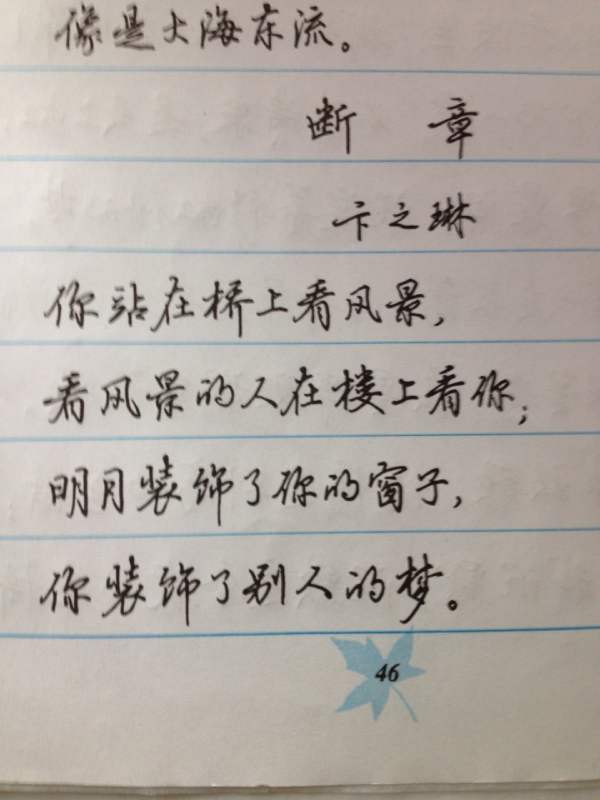 像是大海东流。
断 章
卞之琳
你站在桥上看风景,
看风景的人在楼上看你;
明月装饰了你的窗子,
你装饰了别人的梦。
46